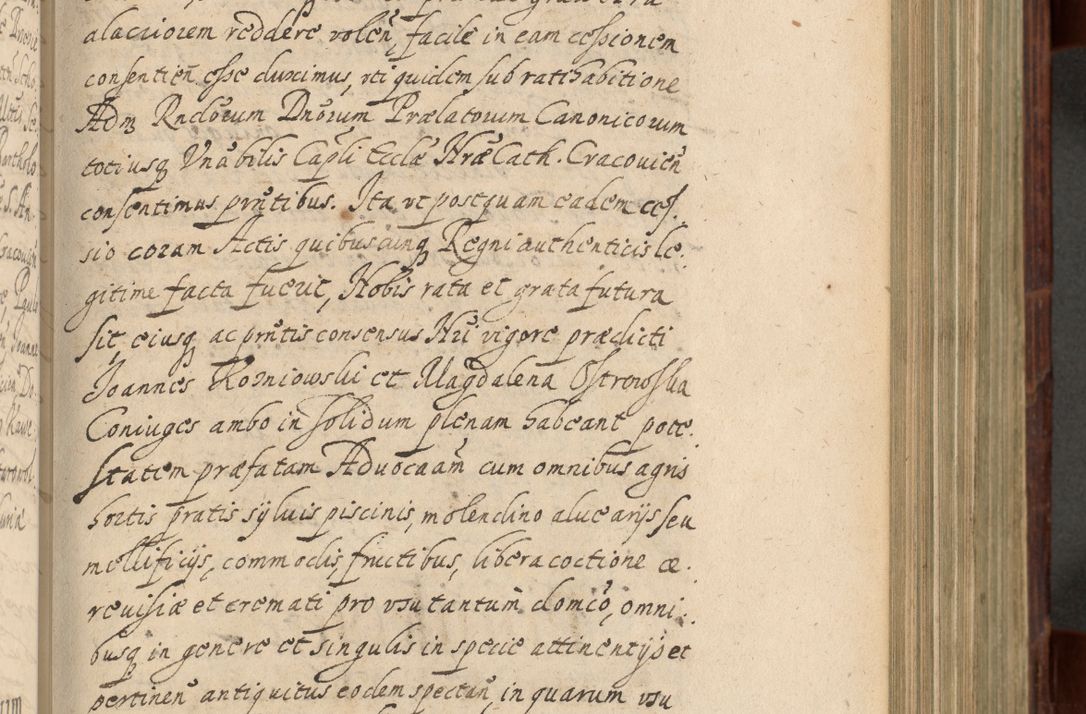 alacriorem reddere volen̄, facile in eam cessionem
consentien̄ esse duximus, uti quidem sub ratihabitione
Adm Rndōrum Dnōrum Prælatorum Canonicorum
totiusq Vnābilis Capl̄i Eccl̄æ Nr̄æ Cath. Cracouien̄
consentimus pnt̄ibus. Ita ut postquam eadem ces,
sio coram Actis quibuscunq Regni authenticis le,
gitime facta fuerit, Nobis rata et grata futura
sit, eiusq ac pnt̄is consensus Nr̄i vigore prædicti
Joannes Kozniowski et Magdalena Ostrowska
Coniuges ambo in solidum plenam habeant pote,
statem præfatam Aduocaām cum omnibus agris
hortis pratis syluis piscinis, molendino aluearijs seu
mellificijs, commodis, fructibus, libera coctione ce,
reuisiæ et cremati pro usu tantum domco̅, omni,
busq in genere et singulis in specie attinentijs et
pertinen̄ antiquitus eodem spectan̄, in quarum usu